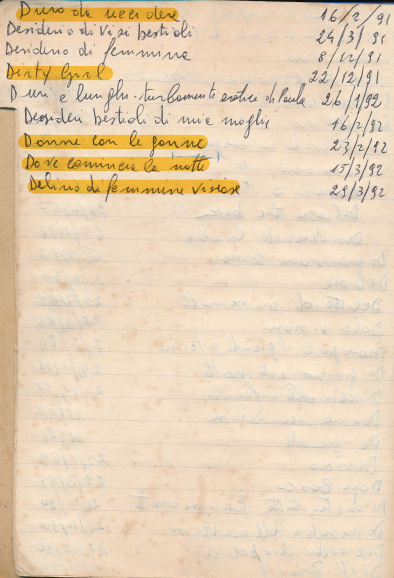 Duro da uccidere 16/2/91
Desiderio di visi bestiali 24/3/91
Desiderio di femmina 8/12/91
Dirty Girl 22/12/91
Duri e lunghi - turbamenti erotici di Paula 26/1/92
Desideri bestiali di mia moglie 16/2/92
Donne con le gonne 23/2/92
Dove comincia la notte 15/3/92
Delirio di femmine viziose 29/3/92